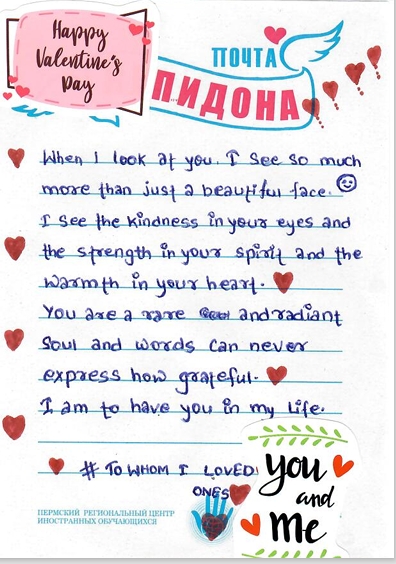 Happy
Valentine's
Day
ПОЧТА
ПИДОНА
When I look at you. I see so much
more than just a beautiful face.
I see the kindness in your eyes and
the strength in your spirit and the
warmth in your heart.
You are a rare and radiant
Soul and words can never
express how grateful.
I am to have you in my life.
# TO WHOM I LOVED
ONES
You
and
me
ПЕРМСКИЙ РЕГИОНАЛЬНЫЙ ЦЕНТР
ИНОСТРАННЫХ ОБУЧАЮЩИХСЯ